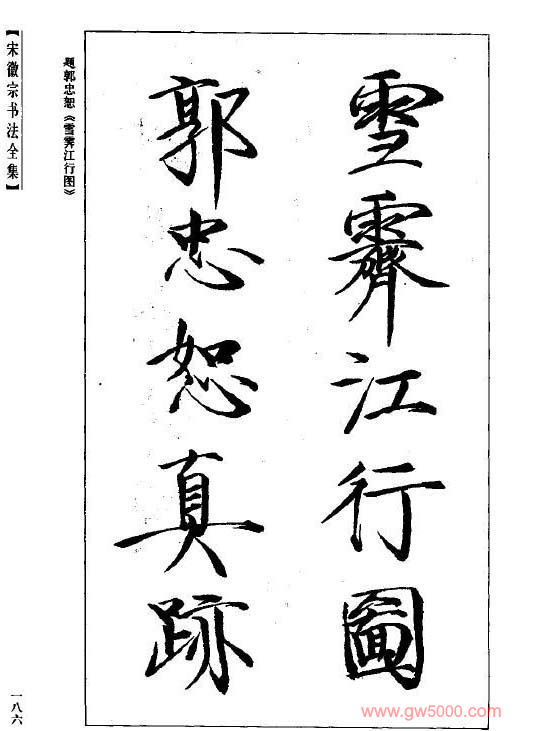 雪霽江行圖
郭忠恕真跡
题郭忠恕《雪霁江行图》
【宋徽宗书法全集】
一八六
www.gw5000.com